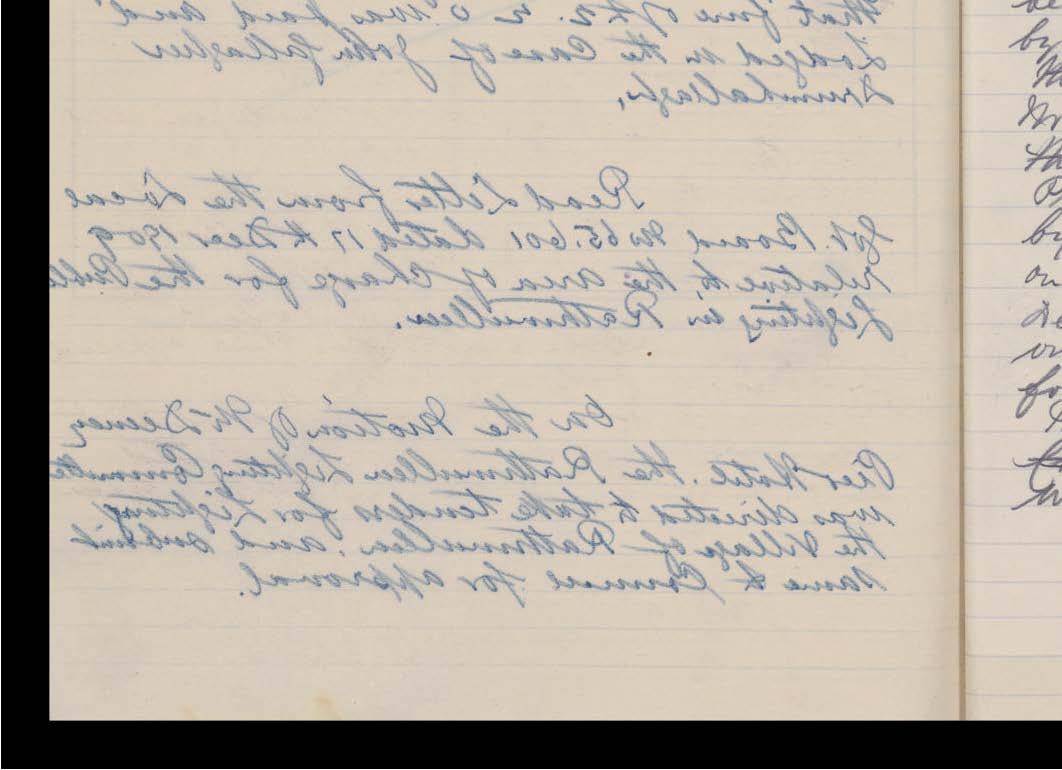 that fine of £2. 2. 0 was paid and
Lodged in the Case of John Gallagher
Drumhallagh.
Read Letter from the Local
Govt. Board No 65.601 dated 17th Decr 1909
relative to the area of Charge for the Public
Lighting in Rathmullen.
On the Motion of Mr Deeney
Pier Hotel. the Rathmullen Lighting Committee
was directed to take tenders for Lighting
the Village of Rathmullen. and submit
same to Council for approval.
by
the
by
on